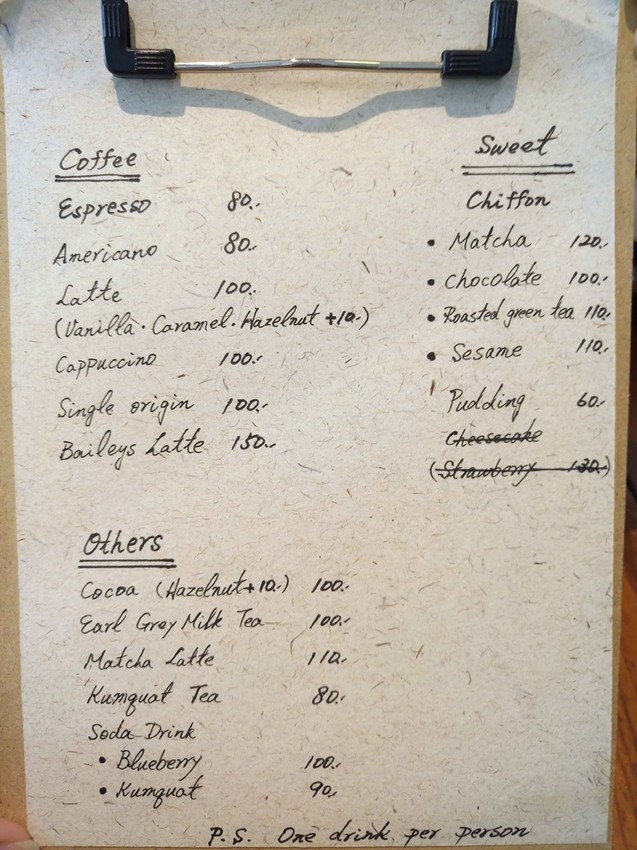 Coffee
Espresso 80.-
Americano 80.-
Latte 100.-
(Vanilla · Caramel · Hazelnut +10.-)
Cappuccino 100.-
Single origin 100.-
Baileys Latte 150.-
Sweet
Chiffon
• Matcha 120.-
• Chocolate 100.-
• Roasted green tea 110.-
• Sesame 110.-
Pudding 60.-
Cheesecake
(Strawberry 130.-)
Others
Cocoa (Hazelnut+10.-) 100.-
Earl Grey Milk Tea 100.-
Matcha Latte 110.-
Kumquat Tea 80.-
Soda Drink
• Blueberry 100.-
• Kumquat 90.-
P.S. One drink per person